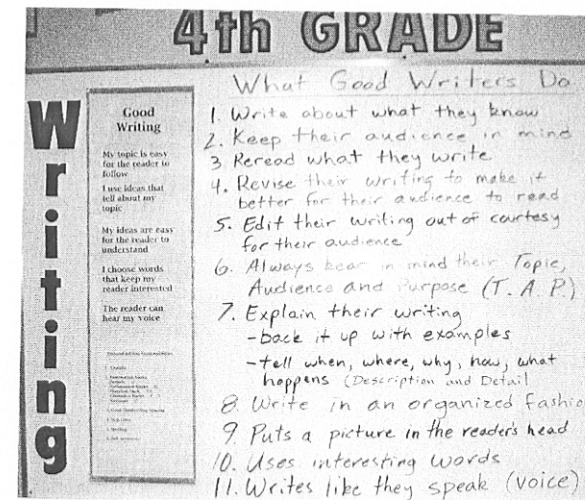 4th GRADE
Writing
Good
Writing
My topic is easy
for the reader to
follow
I use ideas that
tell about my
topic
My ideas are easy
for the reader to
understand
I choose words
that keep my
reader interested
The reader can
hear my voice
What Good Writers Do
1. Write about what they know
2. Keep their audience in mind
3 Reread what they write
4. Revise their writing to make it
better for their audience to read
5. Edit their writing out of courtesy
for their audience
6. Always bear in mind their Topic,
Audience and Purpose (T. A. P.)
7. Explain their writing
-back it up with examples
-tell when, where, why, how, what
happens (Description and Detail
8. Write in an organized fashio
9. Puts a picture in the reader's head
10. Uses interesting words
11. Writes like they speak (voice)